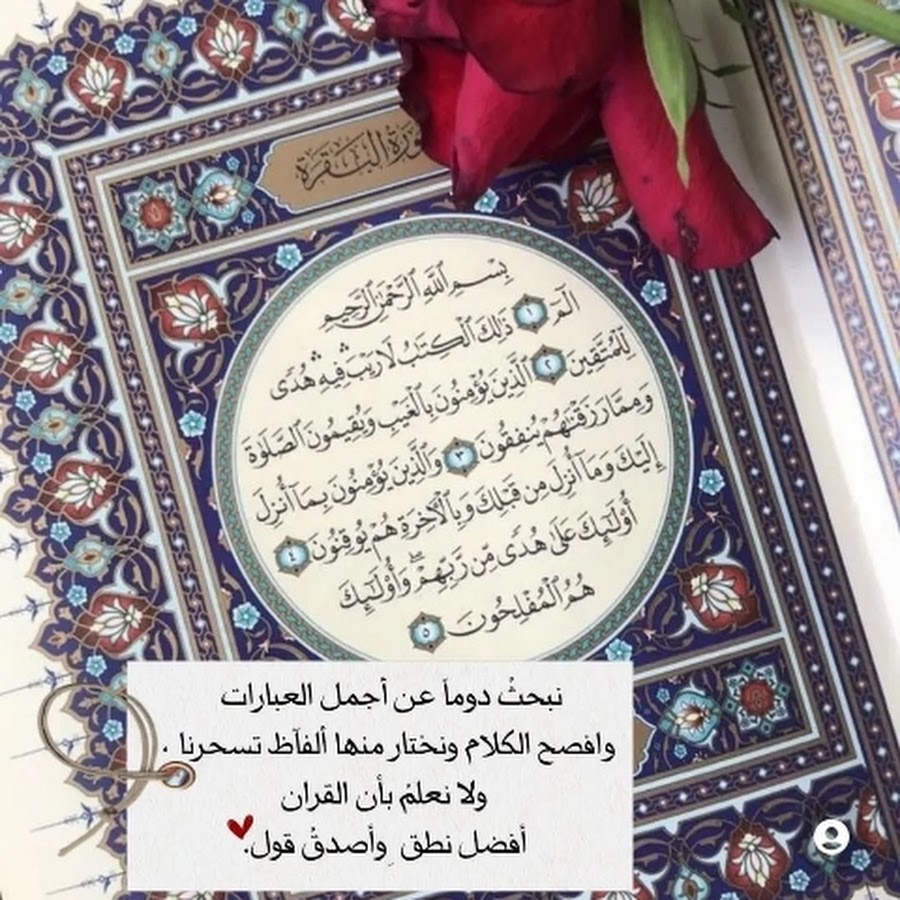 سورة البقرة
بِسْمِ اللَّهِ الرَّحْمَٰنِ الرَّحِيمِ
الٓمٓ ١ ذَٰلِكَ الْكِتَٰبُ لَا رَيْبَ ۛ فِيهِ ۛ هُدًى
لِّلْمُتَّقِينَ ٢ الَّذِينَ يُؤْمِنُونَ بِالْغَيْبِ وَيُقِيمُونَ الصَّلَوٰةَ
وَمِمَّا رَزَقْنَٰهُمْ يُنفِقُونَ ٣ وَالَّذِينَ يُؤْمِنُونَ بِمَا أُنزِلَ
إِلَيْكَ وَمَا أُنزِلَ مِن قَبْلِكَ وَبِالْآخِرَةِ هُمْ يُوقِنُونَ ٤
أُوْلَٰئِكَ عَلَىٰ هُدًى مِّن رَّبِّهِمْ ۖ وَأُوْلَٰئِكَ
هُمُ الْمُفْلِحُونَ ٥
نبحثْ دوماً عن أجمل العبارات
وافصح الكلام ونختار منها ألفآظ تسحرنا .
ولا نعلمْ بأن القران
أفضل نطق ِوأصدقْ قول.